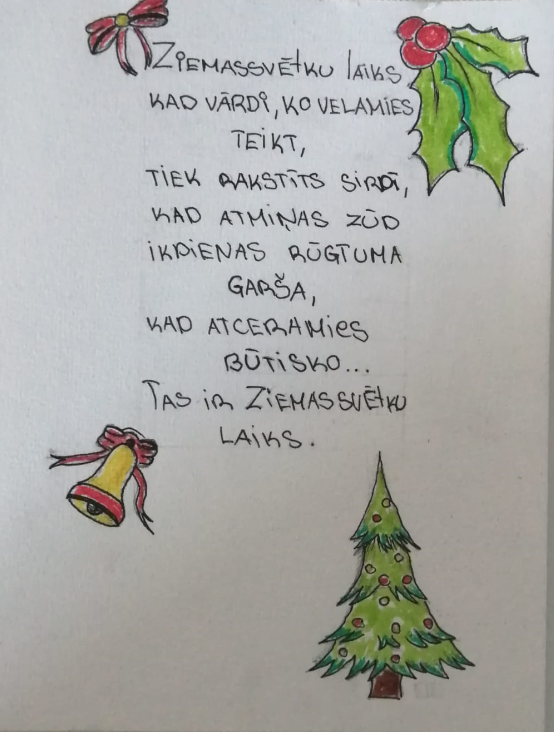 Ziemassvētku laiks
kad vārdi, ko velamies
teikt,
tiek rakstīts sirdī,
kad atmiņas zūd
ikdienas rūgtuma
garša,
kad atceramies
būtisko...
Tas ir Ziemassvētku
laiks.